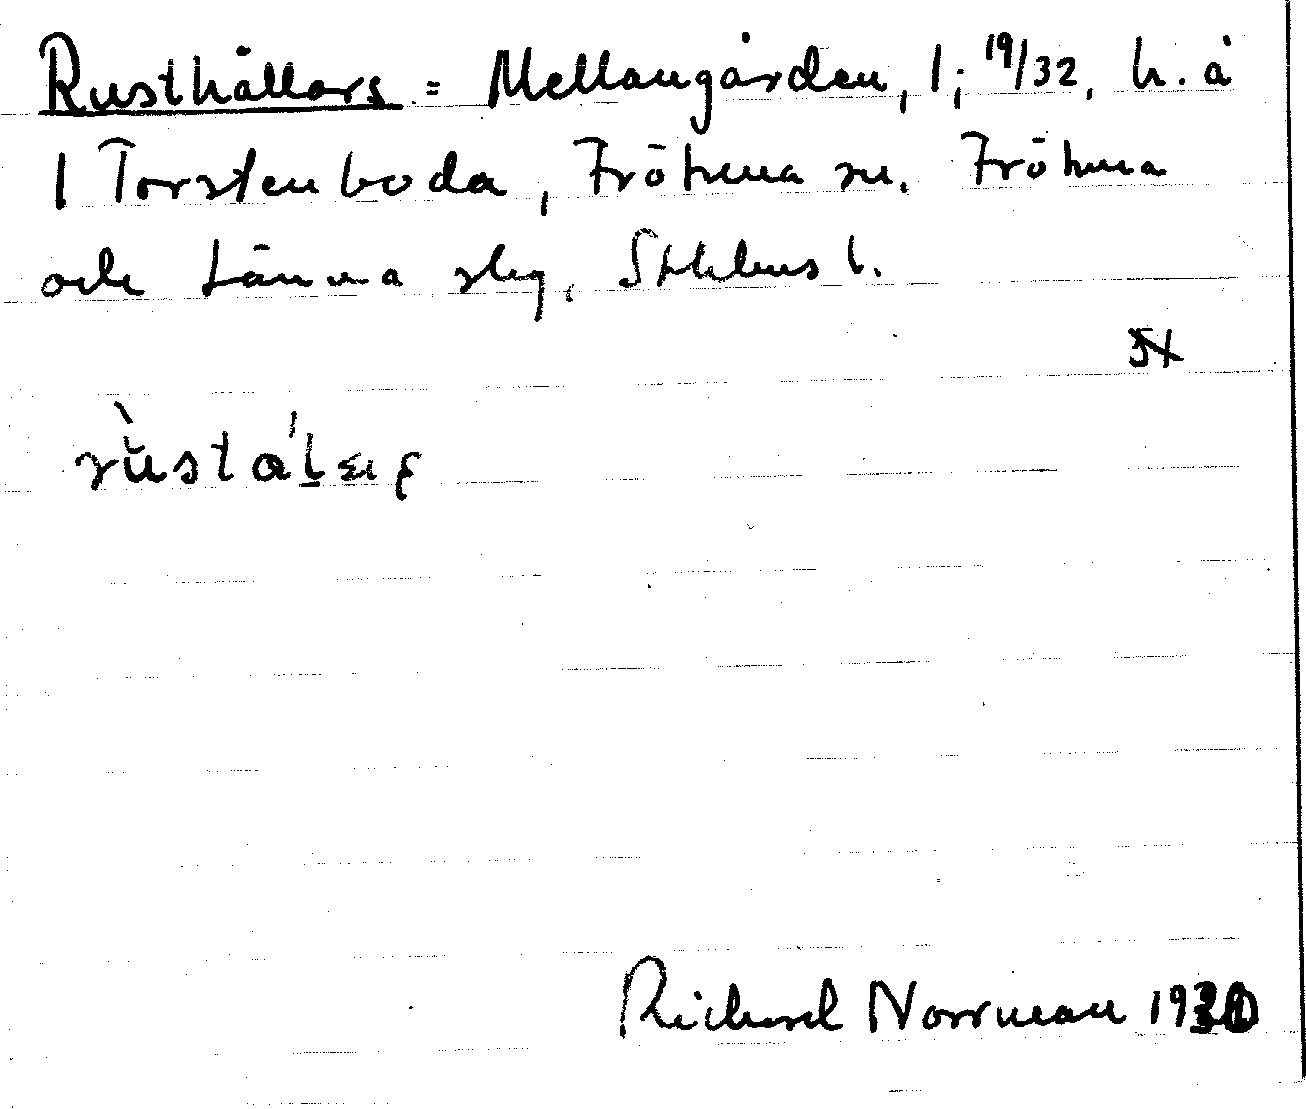 Rusthållars = Mellangården, 1; 19/32, h. å
1 Torstenboda, Frötuna sn. Frötuna
och Länna slg, Sthlms l.
Richard Norrman